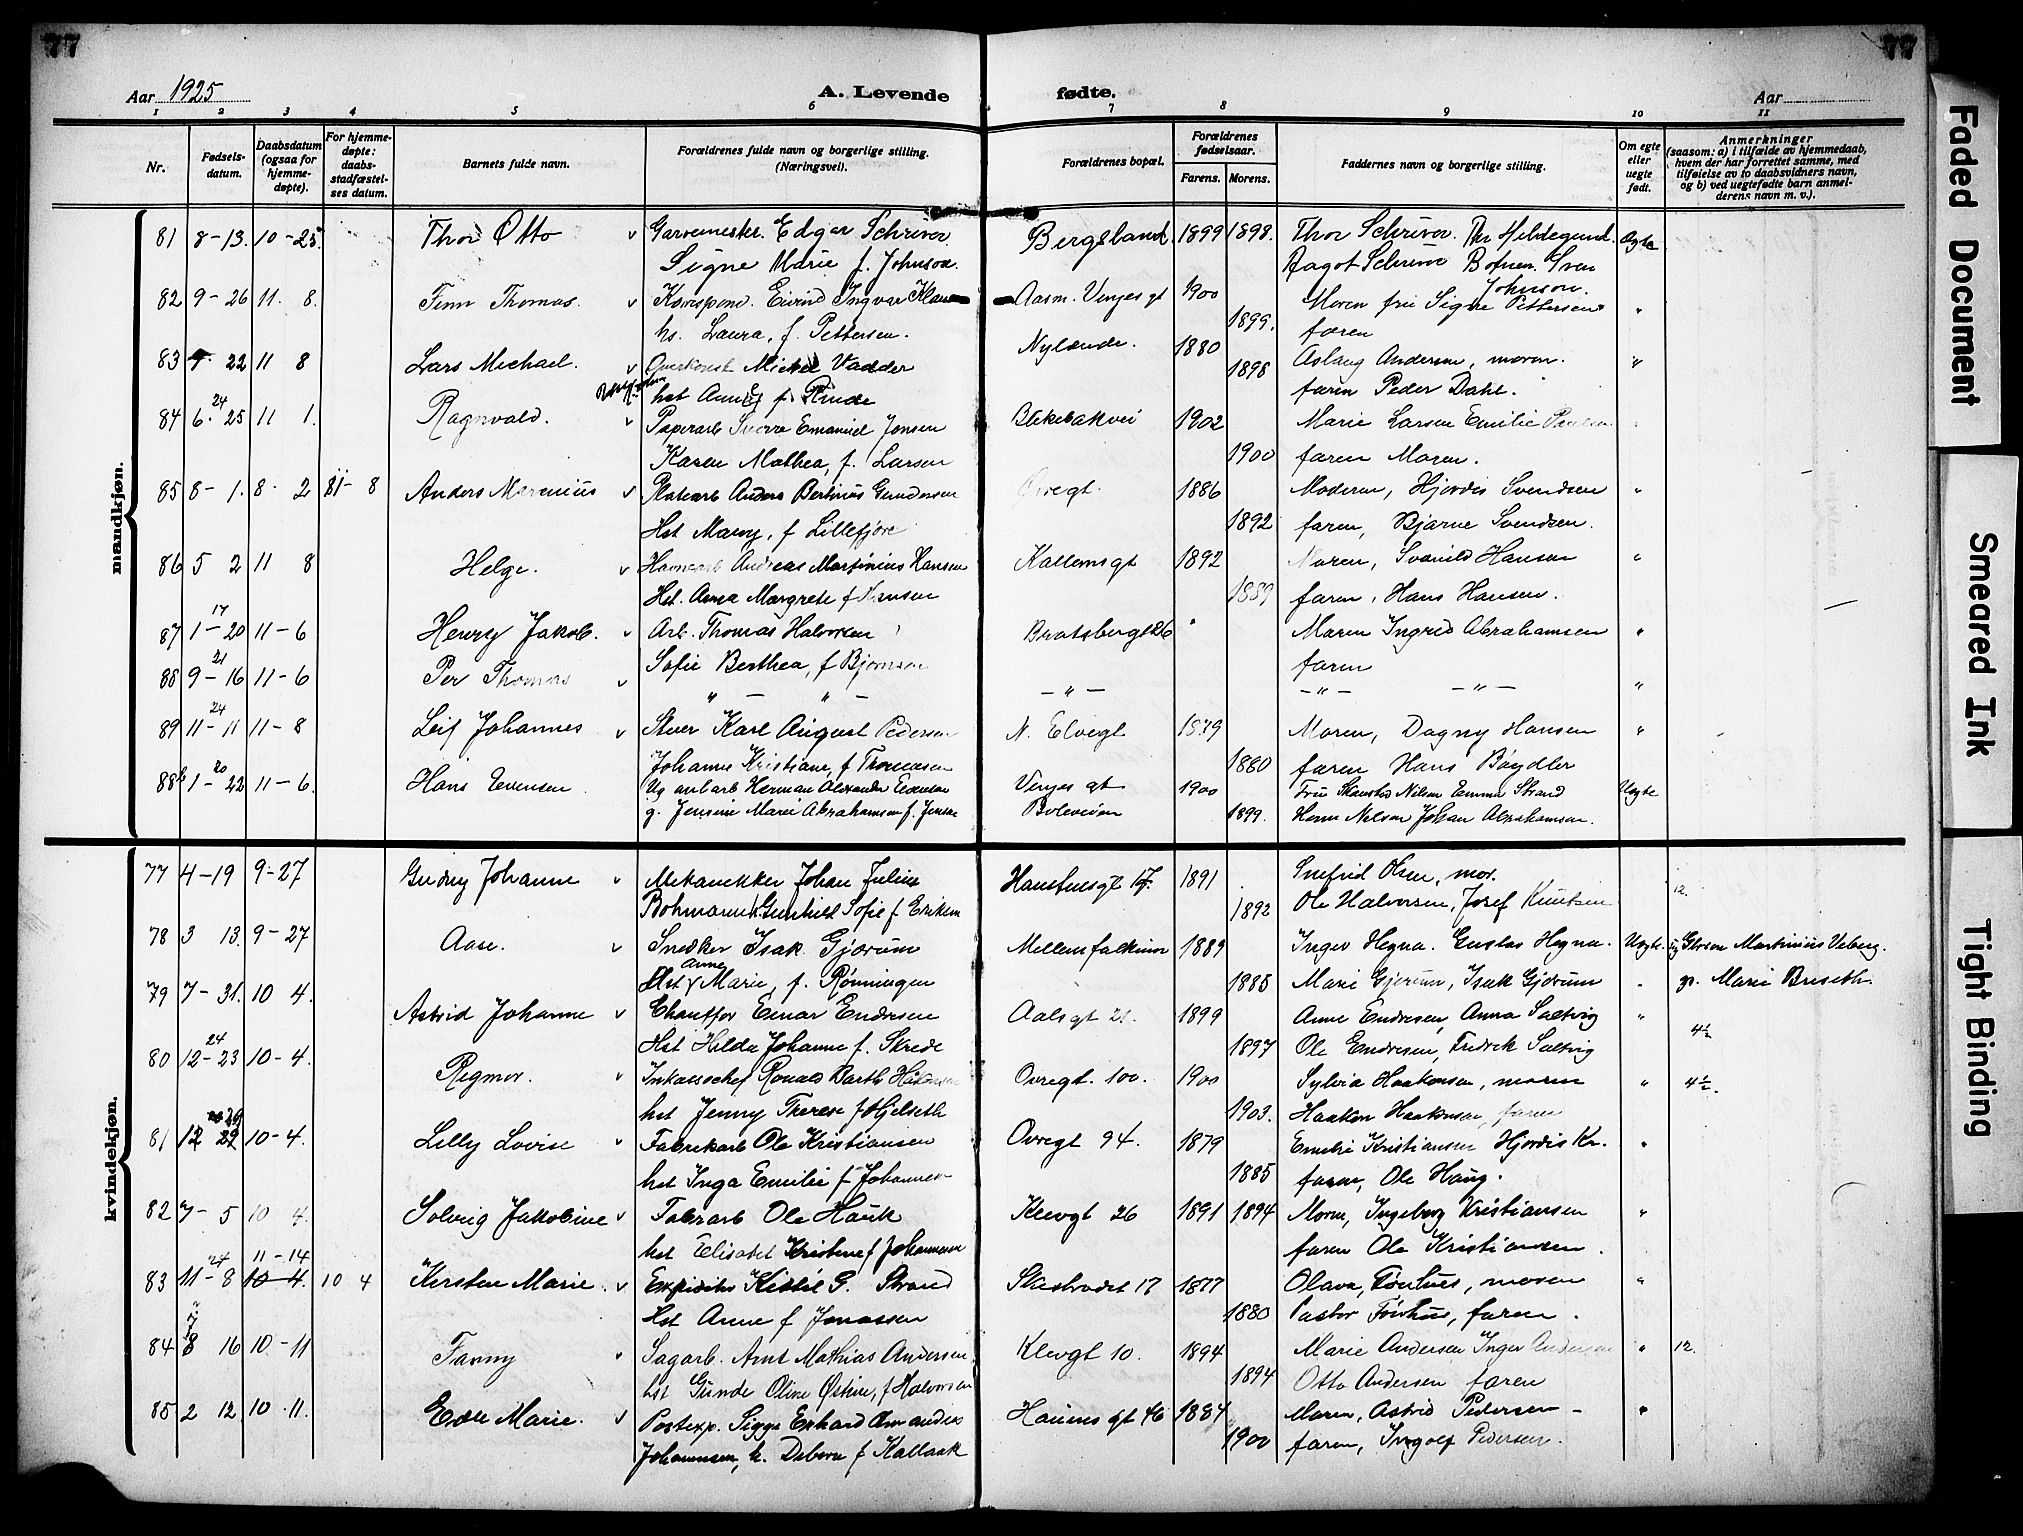 77
77
Aar 1925
A. Levende fødte.
Aar
1 2 3 4 5 6 7 8 9 10 11
Nr.
Fødsels-
datum.
Daabsdatum
(ogsaa for
hjemme-
døpte).
For hjemme-
døpte:
daabs-
stadfæstel-
ses datum.
Barnets fulde navn.
Forældrenes fulde navn og borgerlige stilling.
(Næringsvei).
Forældrenes bopæl.
Forældrenes
fødselsaar.
Farens. Morens.
Faddernes navn og borgerlige stilling.
Om egte
eller
uegte
født.
Anmerkninger
(saasom: a) i tilfælde av hjemmedaab,
hvem der har forrettet samme, med
tilføielse av to daabsvidners navn,
og b) ved uegtefødte barn anmel-
derens navn m. v.).
mandkjøn.
81 8-13. 10-25. Thor Otto v Garvemester. Edgar Schriver Bergsland. 1899 1898. Thor Schriver. Hildegund Ægte
Signe Marie f. Johnson. Dagot Schriver Sven
Johnson.
82 9-26 11. 8. Finn Thomas. v Korrespond. Eivind Ingvar Aasm. Venjes gt 1900 Moren fru Signe Pettersen "
hs. Laura, f. Pettersen. 1899. faren
83 22 11 8 Lars Michael. v Overkonst Michal Vadder Nylænde. 1880 Aslaug Andersen, moren. "
hst f. Rinde 1898 faren Peder Dahl.
84 6. 24 25 11 1. Ragnvald. v Paperarb Sverre Emanuel Jensen Blekebakvei 1902 Marie Larsen Emilie
Karen Mathea, f. Larsen 1900 faren Moren.
85 8-1. 8-2 11-8 Anders Marenius v Anders Bertinus Gundersen Øvregt. 1886 Moderen, Hjordis Svendsen "
Hst Mary, f Lillefjære 1892 faren, Bjarne Svendsen.
86 5 2 11 8 Helge. v Havnearb Andreas Martinius Hansen Kallemsgt 1892 Moren, Svanild Hansen "
Hst. Anna Margrete f Knusen 1889 faren, Hans Hansen.
87 1-17 20 11-6 Henry Jakob. v Arb. Thomas Halvorsen Bratsbergt 26 " Moren Ingrid Abrahamsen "
Sofie Berthea, f Bjørnsen faren
88 9-21 16 11-6 Per Thomas v " - " - - " - - " - - " - "
89 11-24 11 11-8 Leif Johannes v Stuer Karl August Pedersen N. Elvegt 1879 Moren, Dagny Hansen "
Johanne Kristiane, f Thomasen 1880 faren Hans Bøydler
88b 1-20 22 11-6. Hans Evensen Ug anl arb Herman Alexander Evensen Venjes gt 1900 Fru Nilsen Emma Strand Uegte
g. Jensine Marie Abrahamsen f. Jensen Bolevien 1899. Herm Nilsen Johan Abrahamsen.
kvindekjøn.
77 4-19 9-27 Gudny Johanne v Mekanikker Johan Julius Hansensgt 17. 1891 Snefrid Olsen, mor. 12.
Bohmann h. Gunhild Sofie f. Eriksen 1892 Ole Halvorsen, Josef Knutsen
78 3 13. 9-27 Aase. v Snedker Isak Gjørum Mellemfalkum 1889 Inger Hegna. Gustav Hegna. Uegte. Martinius Veberg.
Hst Anne Marie, f. Rønningen 1885 Marie Gjørum, Isak Gjørum " Marie Breseth.
79 7-31. 10 4. Astrid Johanne v Chauffør Einar Endresen Aalsgt 21. 1899 Anne Endresen, Anna Saltvig "
Hst Hilda Johanne f. Skrede 1897 Ole Endresen, Fredrik Saltvig 4½
80 12-24 23 10-4. Rigmor. v Inkassochef Ronald Barth Haakonsen Ovregt. 100. 1900 Sylvia Haakonsen, moren " 4½.
hst Jenny Therese f Hjelseth 1903. Haakon Haakonsen, faren
81 12 29 10-4. Lilly Lovise v Fabrikarb Ole Kristiansen Ovregt 94. 1879 Emelie Kristiansen Hjordis Kr. "
hst Inga Emilie f Johannesen 1885 faren, Ole Haug.
82 7-5 10 4. Solveig Jakobine v Fabrarb Ole Hauk Klevgt 26 1891 1894 Moren, Ingeborg Kristiansen "
hst Elisabet Kristine f Johannesen faren Ole Kristiansen.
83 11-24 8 10-4. 11-14 10 4 Kirsten Marie. v Expeditør Kittil G. Strand Skistredet 17 1877 Olava, Tønhus, moren "
Hst Anne f Jonassen 1880 Pastor Tønhus, faren.
84 8 16 10-11 Fanny v Sagarb. Arnt Mathias Andersen Klevgt 10. 1894 Marie Andersen Inger Andersen " 12.
hst Gunde Oline Østine, f Halvorsen 1894 Otto Andersen faren
85 2 12. 10.11. Edle Marie. v Postexp. Sigge Erhard Amandus Hauens gt 46 1884 Moren, Astrid Pedersen "
Johannesen, h. Debora f Kallaak 1900 faren, Ingolf Pedersen.
Faded Document
Smeared Ink
Tight Binding